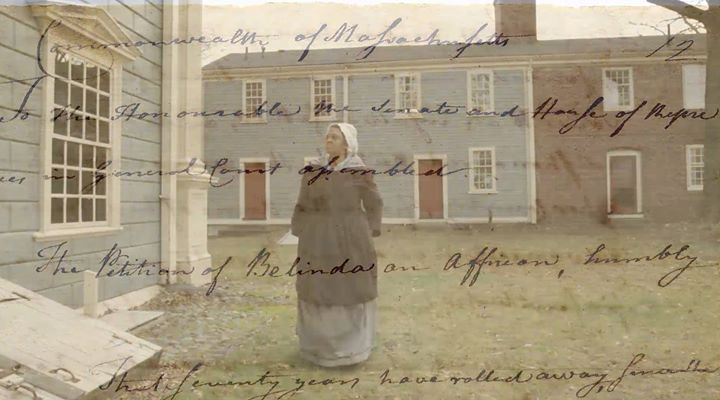 Commonwealth of Massachusetts 12
To The Honourable the Senate and House of Repre
es in General Court assembled.
The Petition of Belinda an Affrican, humbly
That Seventy years have rolled away,